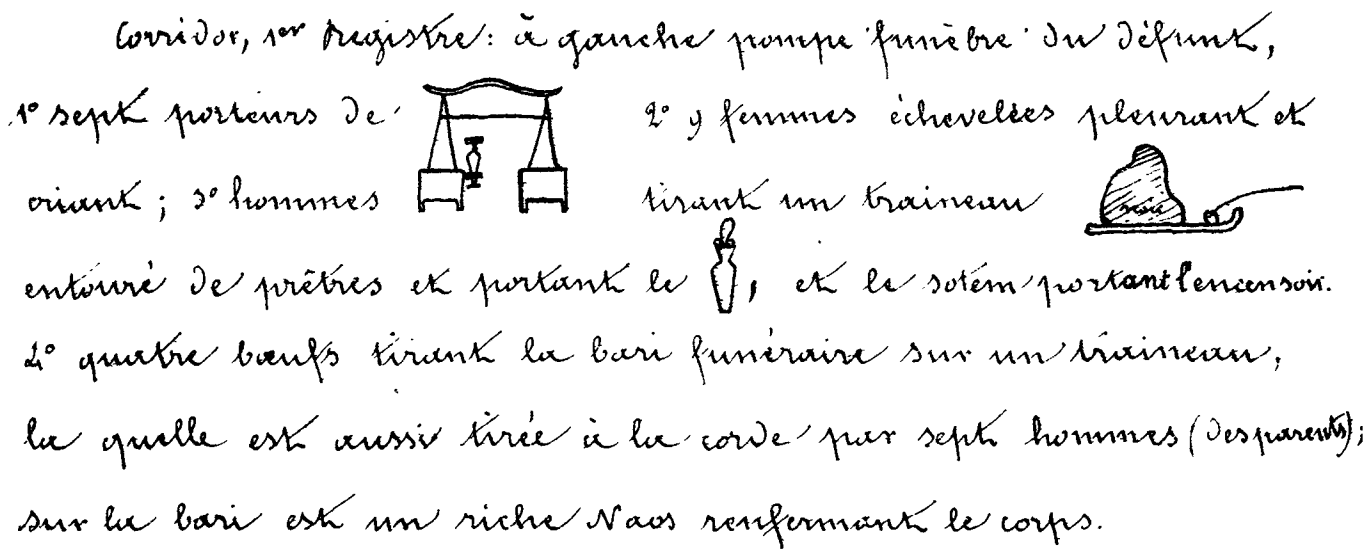 Corridor, 1er Registre: à gauche pompe funèbre du défunt,
1° sept porteurs de 2° 9 femmes échevelées pleurant et
criant; 3° hommes tirant un traineau noir
entouré de prêtres et portant le , et le sotem portant l'encensoir.
4° quatre bœufs tirant la bari funéraire sur un traineau,
la quelle est aussi tirée à la corde par sept hommes (des parents);
sur la bari est un riche Naos renfermant le corps.